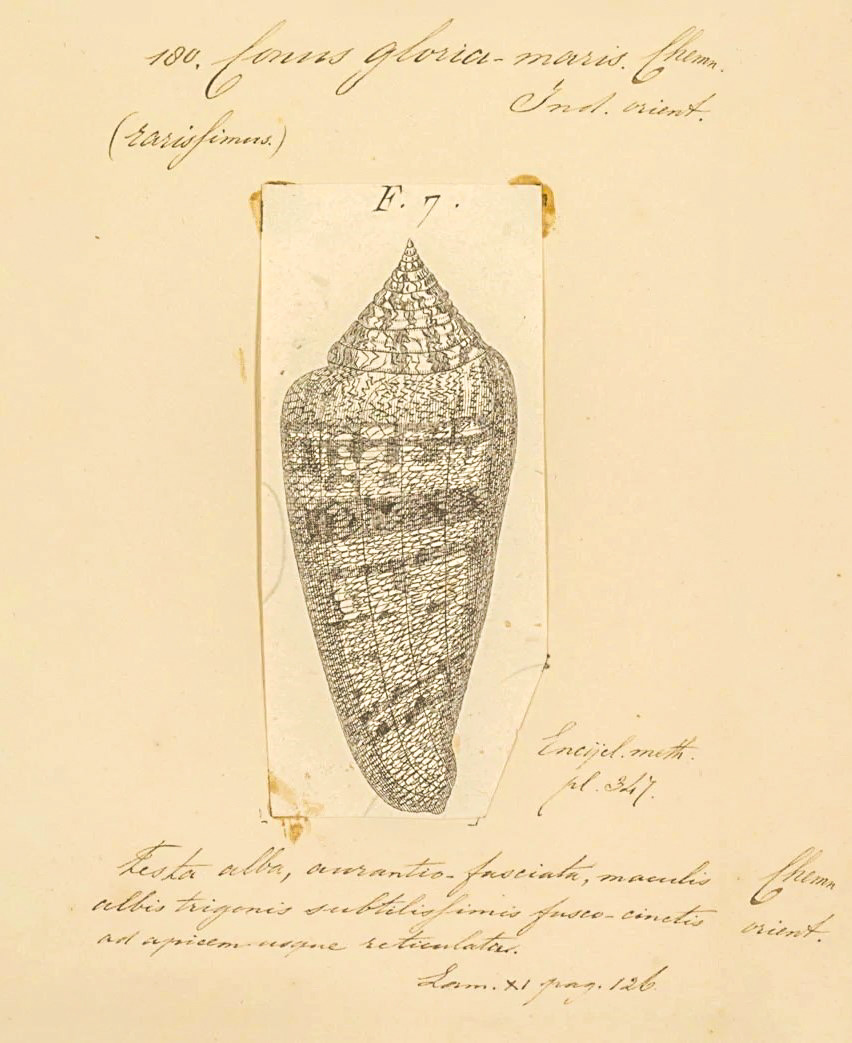 180. Conus gloria-maris. Chemn.
Ind. orient.
(rarissimus.)
F. 7.
Encijcl. meth.
pl. 347.
Testa alba, aurantio-fasciata, maculis
albis trigonis subtilissimis fusco-cinctis
ad apicem usque reticulata.
Chemn
orient.
Lam. XI pag. 126